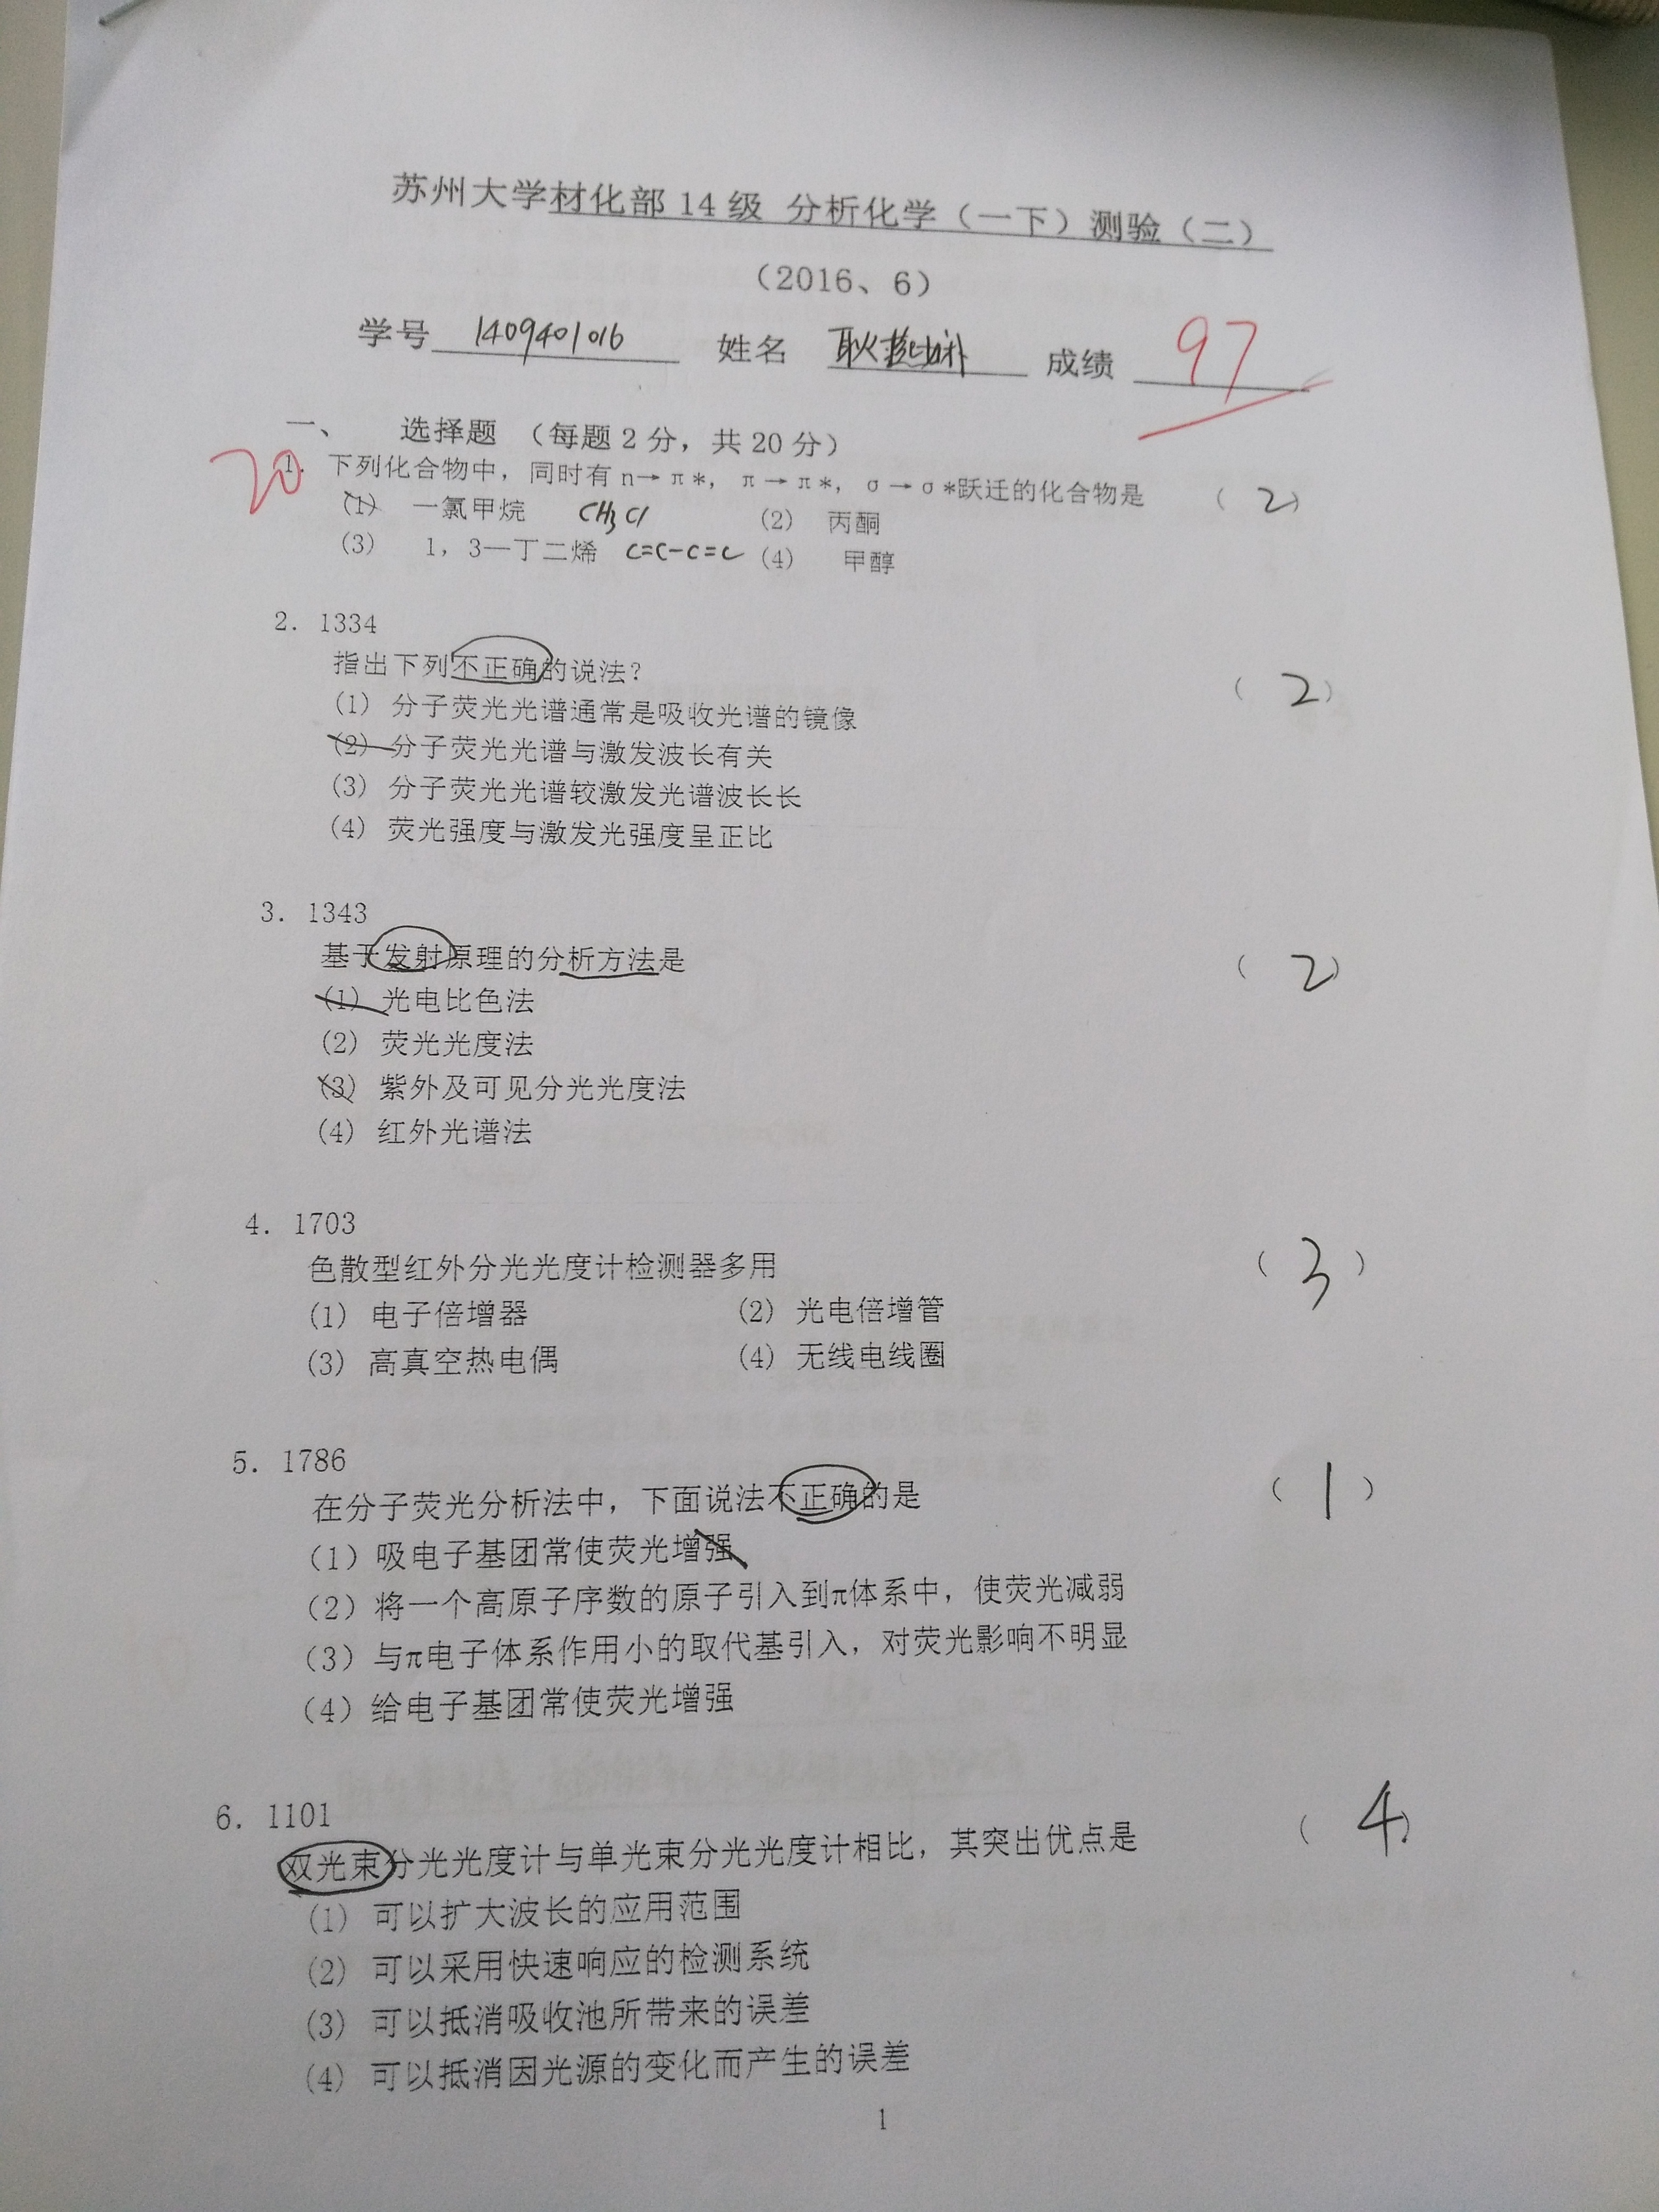 苏州大学材化部 14 级 分析化学（一下）测验（二）
（2016、6）
学号 1409401016 姓名 耿 成绩 97
一、 选择题 （每题 2 分，共 20 分）
20
1. 下列化合物中，同时有 n→π*，π→π*，σ→σ*跃迁的化合物是 （ 2 ）
(1) 一氯甲烷 CH3Cl (2) 丙酮
(3) 1，3—丁二烯 C=C-C=C (4) 甲醇
2. 1334
指出下列不正确的说法？ （ 2 ）
(1) 分子荧光光谱通常是吸收光谱的镜像
(2) 分子荧光光谱与激发波长有关
(3) 分子荧光光谱较激发光谱波长长
(4) 荧光强度与激发光强度呈正比
3. 1343
基于发射原理的分析方法是 （ 2 ）
(1) 光电比色法
(2) 荧光光度法
(3) 紫外及可见分光光度法
(4) 红外光谱法
4. 1703
色散型红外分光光度计检测器多用 （ 3 ）
(1) 电子倍增器 (2) 光电倍增管
(3) 高真空热电偶 (4) 无线电线圈
5. 1786
在分子荧光分析法中，下面说法不正确的是 （ 1 ）
(1) 吸电子基团常使荧光增强
(2) 将一个高原子序数的原子引入到π体系中，使荧光减弱
(3) 与π电子体系作用小的取代基引入，对荧光影响不明显
(4) 给电子基团常使荧光增强
6. 1101
双光束分光光度计与单光束分光光度计相比，其突出优点是 （ 4 ）
(1) 可以扩大波长的应用范围
(2) 可以采用快速响应的检测系统
(3) 可以抵消吸收池所带来的误差
(4) 可以抵消因光源的变化而产生的误差
1